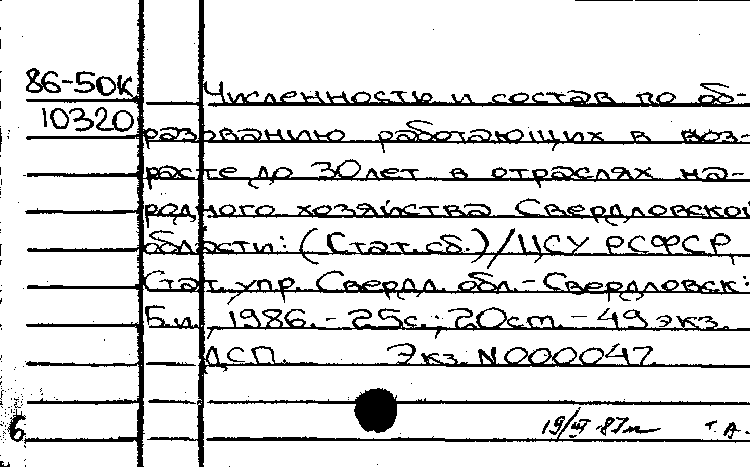 86-50К
10320
Численность и состав по об-
разованию работающих в воз-
расте до 30 лет в отраслях на-
родного хозяйства Свердловской
области: (Стат. сб.) / ЦСУ РСФСР,
Стат. упр. Свердл. обл.- Свердловск:
Б.и., 1986. - 25с.; 20 см. - 49 экз.
ДСП. Экз. N000047.
6
19/VI 87г.
т. А.